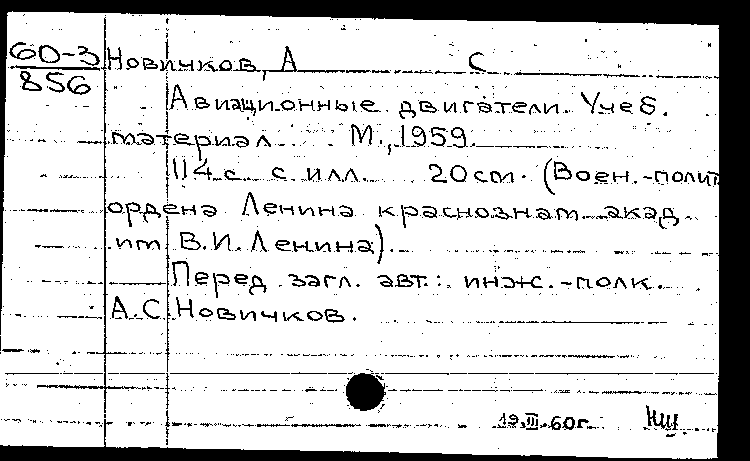 60-3 Новичков, А С
856
Авиационные двигатели. Учеб.
материал М., 1959.
114 с. с илл. 20 см. (Воен.-полит
ордена Ленина краснознам. акад.
им В.И. Ленина).
Перед загл. авт.: инж.-полк.
А.С Новичков.
19.III.60г.